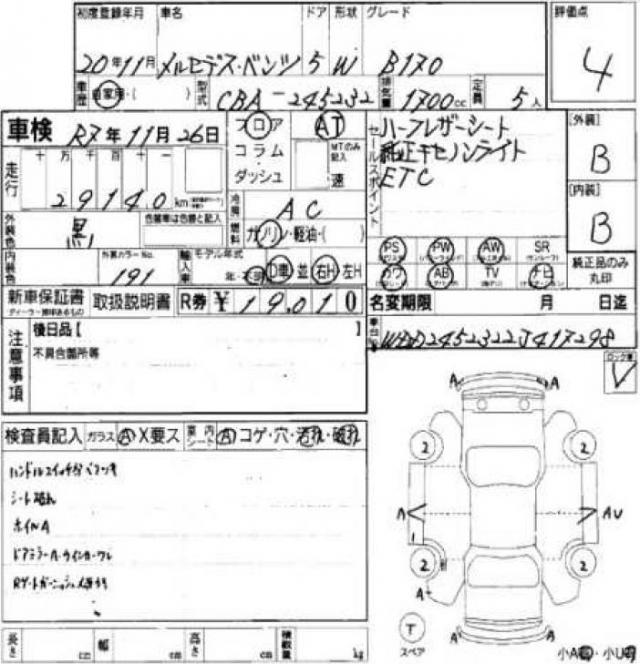 初度登録年月 車名 ドア 形状 グレード 評価点
20年11月 メルセデス・ベンツ 5 W B170 4
車歴 自家用・( ) 型式 CBA-245232 排気量 1700cc 定員 5人
車検 R7年11月26日 フロア AT
コラム MTのみ記入
ダッシュ 速
走行 十 万 千 百 十 一
29140 km
セールスポイント
ハーフレザーシート
純正キセノンライト
ETC
[外装]
B
[内装]
B
冷房 AC
外装色 黒 色替車は色替と記入 燃料 ガソリン・軽油・( )
内装色 外装カラーNo. 191 輸入車 モデル年式 D車 並 右H 左H
PS PW AW SR
カワ AB TV ナビ
純正品のみ丸印
新車保証書 取扱説明書 R券 ¥19,010
名変期限 月 日迄
車台No. WDD2452322J417298
注意事項
後日品【 】
不具合箇所等
検査員記入 ガラス A X要ス 室内シート A コゲ・穴・汚れ・破れ
ハンドルスイッチ分ベタツキ
シート破れ
ホイルA
ドアミラーA・ウインカーワレ
Rゲートガーニッシュ
A A
2 2
A AU
1
2 2
A
A A
T
スペア
小A・小U
長さ cm 幅 cm 高さ cm 積載量 kg